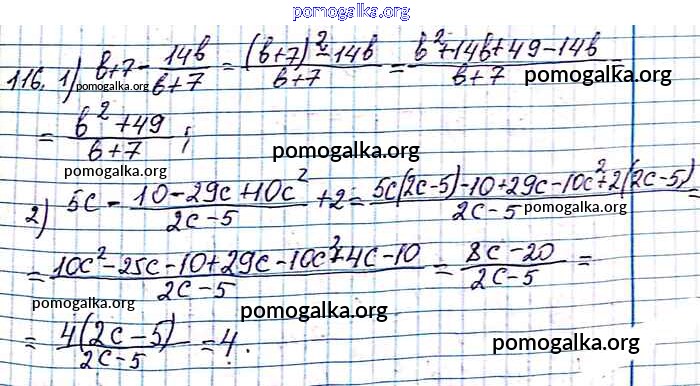 pomogalka.org
116. 1) b+7 - 14b/(b+7) = ((b+7)² - 14b)/(b+7) = (b²+14b+49-14b)/(b+7)
pomogalka.org pomogalka.org
= (b²+49)/(b+7);
pomogalka.org
pomogalka.org
2) 5c - (10-29c+10c²)/(2c-5) + 2 = (5c(2c-5)-10+29c-10c²+2(2c-5))/(2c-5) =
pomogalka.org
= (10c²-25c-10+29c-10c²+4c-10)/(2c-5) = (8c-20)/(2c-5) =
pomogalka.org
pomogalka.org
= 4(2c-5)/(2c-5) = 4.
pomogalka.org